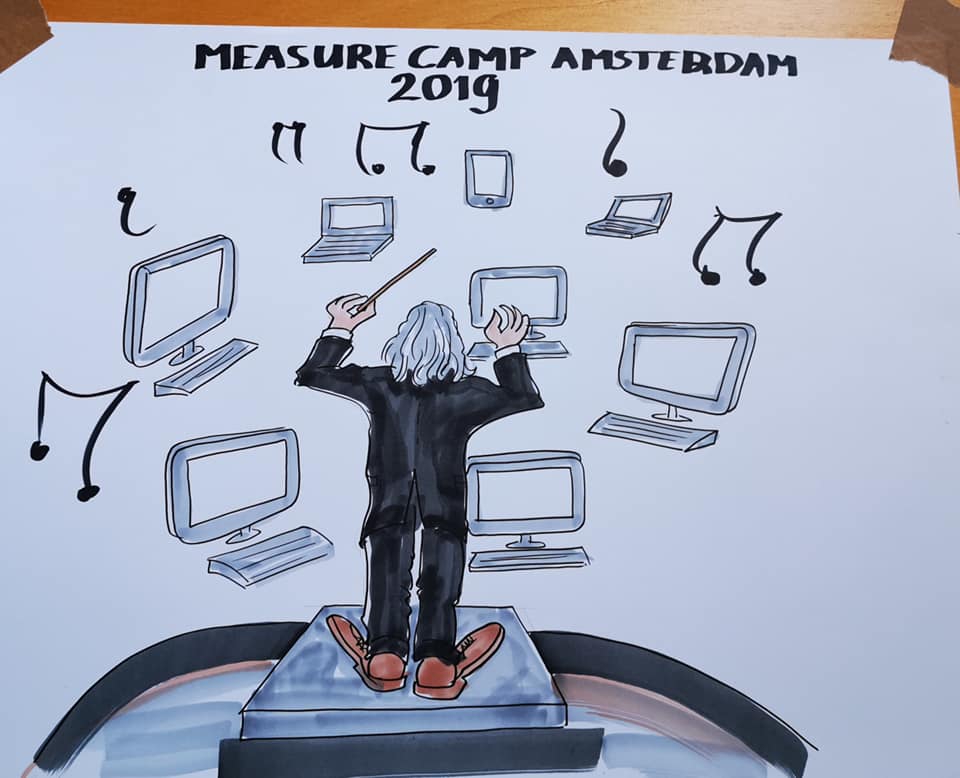 MEASURE CAMP AMSTERDAM
2019